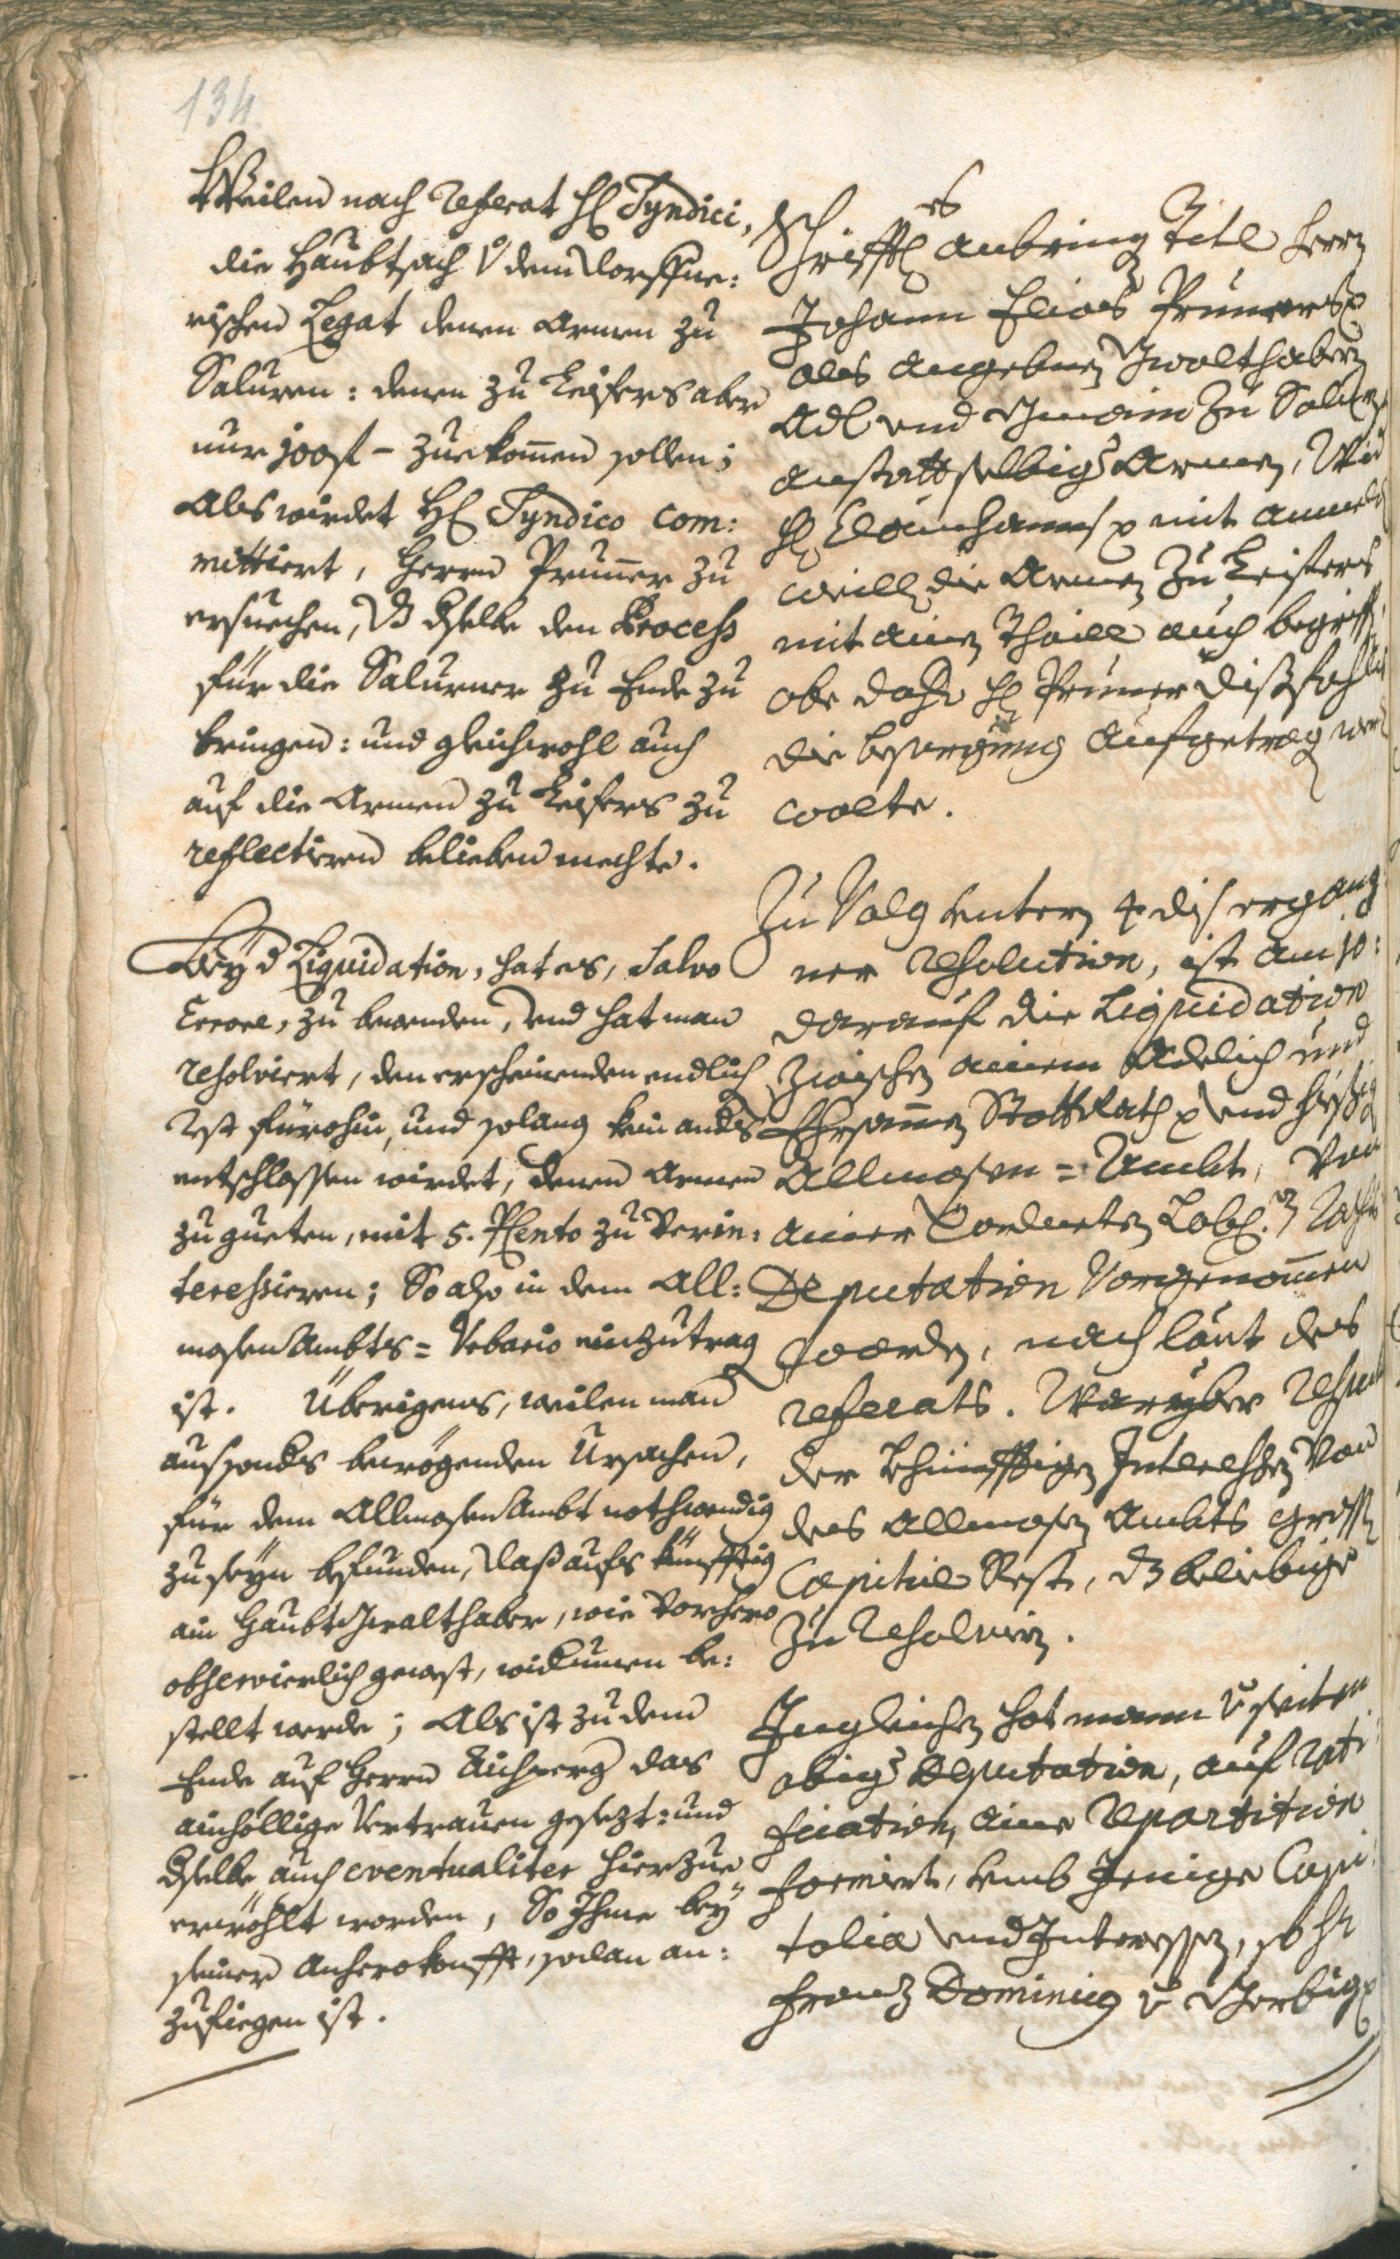 134
Weilen nach Referat H: Syndici,
die Haubtsach v dem Dorffne:
rischen Legat denen Armen zu
Salurn: denen zu Leifers aber
nur 100 fl – zuekomen sollen;
Als wirdet H: Syndico com:
mittiert, Herrn Prunner zu
ersuechen, dz dselbe den Process
für die Salurner zu Ende zu
bringen: und gleichwohl auch
auf die Armen zu Leifers zu
reflectiren belieben mechte.
Bey d Liquidation, hat es, salvo
Errore, zu bewenden, und hat man
resolviert, den erscheinenden endlich
Rest fürohin, und solang kein anders
entschlossen wirdet, denen Armen
zu gueten, mit 5. P Cento zu verin:
teressieren; So also in dem All:
mosen Ambts= Urbario einzutrag
ist. Überigens, weilen man
aus sonders bewögenden Ursachen,
für dem Allmosen Ambt nothwendig
zu seyn befunden, daß aufs künfftig
ain Haubt Gwalthaber, wie vorhero
observierlich gewest, widerumen be:
stellt werde; Als ist zu dem
Ende auf Herrn Aichperg das
ainhöllige Vertrauen gesezt: und
dselbe auch eventualiter hierzue
erwöhlt worden, So Ihme bey
seiner Anherokonfft, sodan an:
zufiegen ist.
Schrifftl: anbringes Titl Herrn
Johann Elias Prunners
als angebner Gwalthabern
Adl und Gmain zu Salurn
anstatt selbiger Armen, Wid
H: mit anmeld
weill die Armen zu Leifers
mit ainen Thaill auch begriffn,
obe dahero H: Prunner dißfahls
die besorgung aufgetrag werdn
wolte.
Zu Volg untern 4 dis ergang
ner Resolution, ist am 10:
darauf die Liquidation
zwischen ainem Adelich und
Ehrsamen Statt Rath und hießig
Allmosen= Ambt, von
ainer Löbl:
Deputation vorgenommen
worden, nach laut des
referats. Waryber
der khünfftigen Interessen von
des Allmosen Ambts grossn
Capital Rest, dz beliebige
zu Resolviern.
Ingleichen hat mann v seiten
obiger Deputation, auf rati:
fication, aine Repartition
formiert, umb Jenige Capi:
talia und Interessen, so Hr
Franz Dominicus v